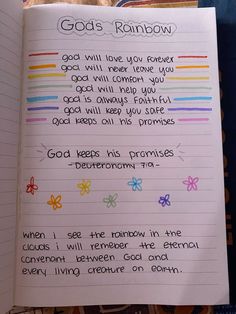 Gods Rainbow
god will love you forever
god will never leave you
god will comfort you
god will help you
god is always faithful
god will keep you safe
god keeps all his promises
God keeps his promises
- Deuteronomy 7:9 -
when I see the rainbow in the
clouds i will remeber the eternal
convenant between God and
every living creature on earth.